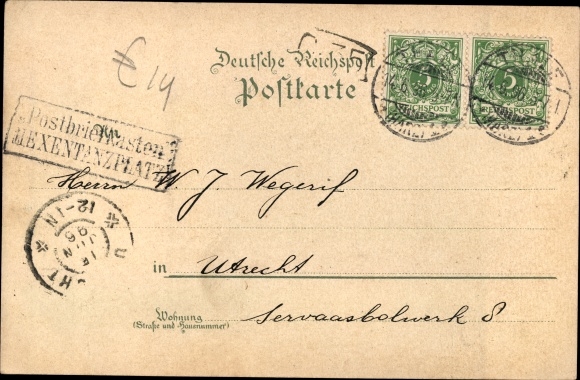 € 14
Deutsche Reichspost
Postkarte
5
REICHSPOST
5
REICHSPOST
Postbriefkasten
HEXENTANZPLATZ
An
Herrn W. J. Wegerif
12-1N
JUN
96
in Utrecht
Wohnung Servaasbolwerk 8
(Straße und Hausnummer)